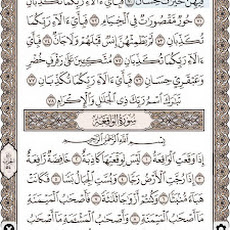 فِيهِنَّ خَيْرَٰتٌ حِسَانٌ ۝٧٠ فَبِأَيِّ ءَالَآءِ رَبِّكُمَا تُكَذِّبَانِ
۝٧١ حُورٌ مَّقْصُورَٰتٌ فِي ٱلْخِيَامِ ۝٧٢ فَبِأَيِّ ءَالَآءِ رَبِّكُمَا
تُكَذِّبَانِ ۝٧٣ لَمْ يَطْمِثْهُنَّ إِنسٌ قَبْلَهُمْ وَلَا جَآنٌّ ۝٧٤ فَبِأَيِّ
ءَالَآءِ رَبِّكُمَا تُكَذِّبَانِ ۝٧٥ مُتَّكِـِٔينَ عَلَىٰ رَفْرَفٍ خُضْرٍ
وَعَبْقَرِيٍّ حِسَانٍ ۝٧٦ فَبِأَيِّ ءَالَآءِ رَبِّكُمَا تُكَذِّبَانِ ۝٧٧
تَبَٰرَكَ ٱسْمُ رَبِّكَ ذِي ٱلْجَلَٰلِ وَٱلْإِكْرَامِ ۝٧٨
سُورَةُ الْوَاقِعَةِ
بِسْمِ ٱللَّهِ ٱلرَّحْمَٰنِ ٱلرَّحِيمِ
إِذَا وَقَعَتِ ٱلْوَاقِعَةُ ۝١ لَيْسَ لِوَقْعَتِهَا كَاذِبَةٌ ۝٢ خَافِضَةٌ رَّافِعَةٌ
۝٣ إِذَا رُجَّتِ ٱلْأَرْضُ رَجًّا ۝٤ وَبُسَّتِ ٱلْجِبَالُ بَسًّا ۝٥ فَكَانَتْ
هَبَآءً مُّنۢبَثًّا ۝٦ وَكُنتُمْ أَزْوَٰجًا ثَلَٰثَةً ۝٧ فَأَصْحَٰبُ ٱلْمَيْمَنَةِ
مَآ أَصْحَٰبُ ٱلْمَيْمَنَةِ ۝٨ وَأَصْحَٰبُ ٱلْمَشْـَٔمَةِ مَآ أَصْحَٰبُ